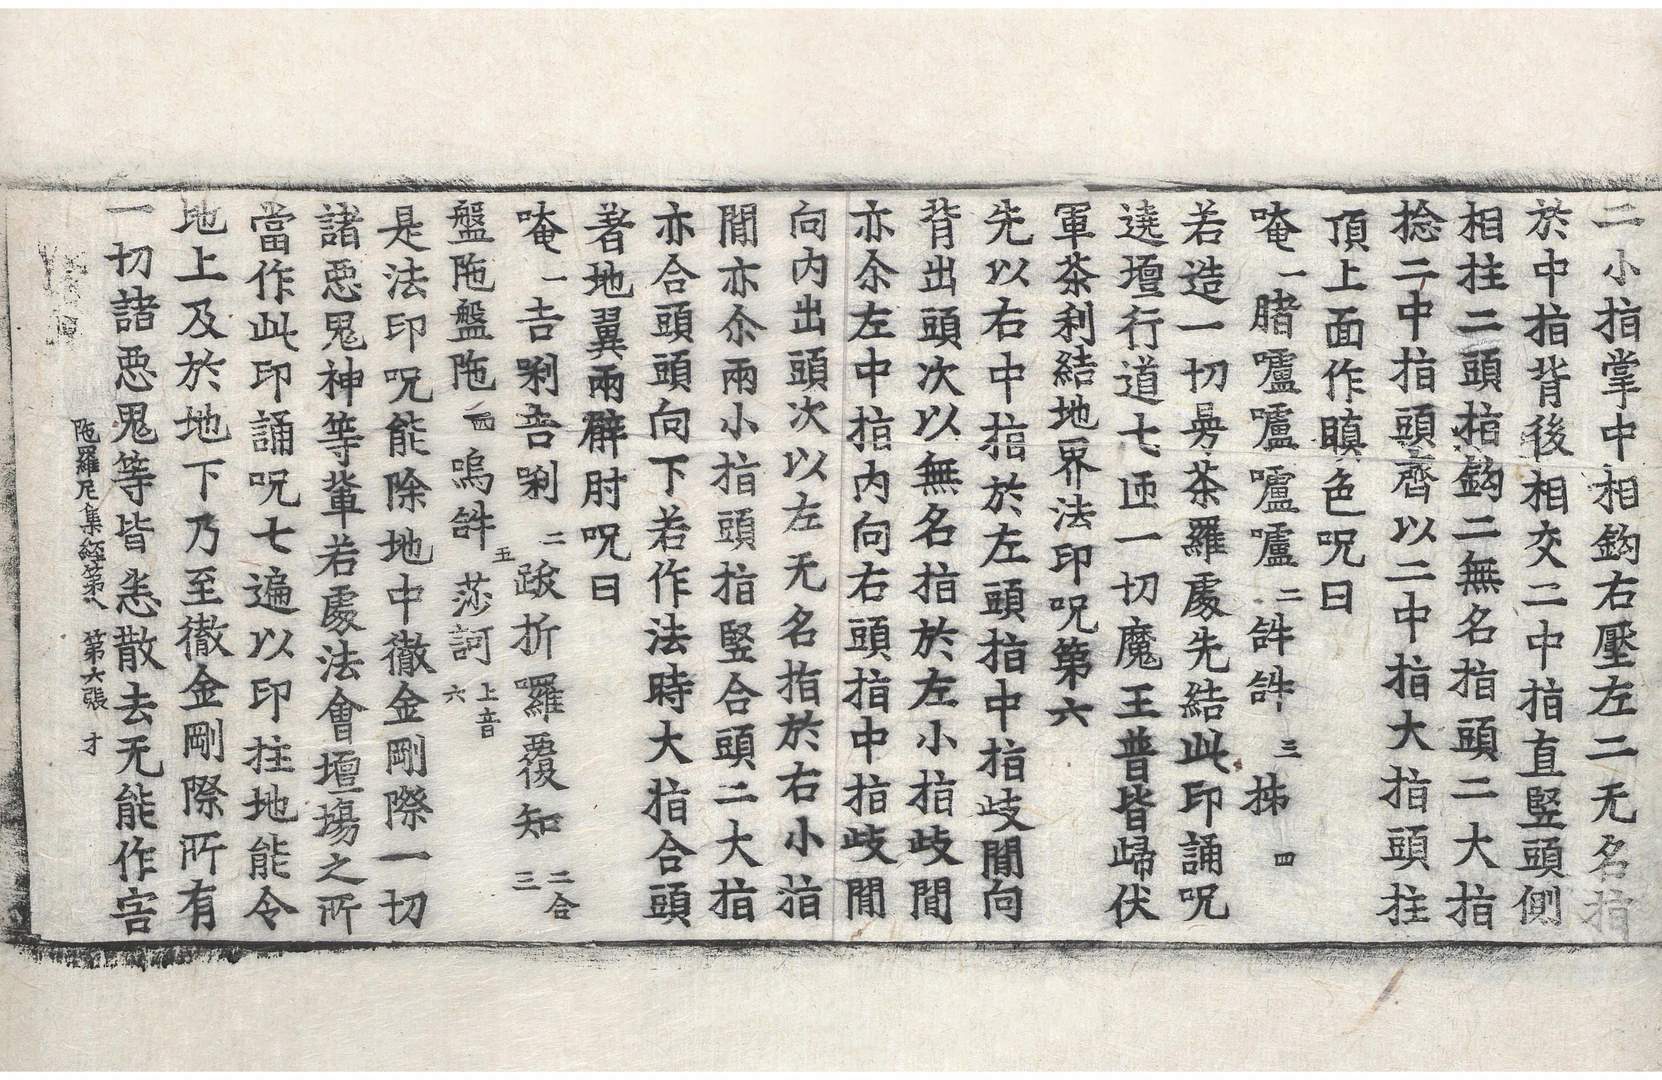 二小指掌中相鉤右壓左二无名指
於中指背後相交二中指直竪頭側
相拄二頭指鉤二無名指頭二大指
捻二中指頭齊以二中指大指頭拄
頂上面作瞋色呪曰
唵一䐗嚧嚧嚧嚧二𤙖𤙖三㧊四
若造一切曼茶羅處先結此印誦呪
遶壇行道七迊一切魔王普皆歸伏
軍茶利結地界法印呪第六
先以右中指於左頭指中指歧間向
背出頭次以無名指於左小指歧間
亦尒左中指內向右頭指中指歧間
向內出頭次以左无名指於右小指
間亦尒兩小指頭指竪合頭二大指
亦合頭頭向下若作法時大指合頭
著地翼兩臂肘呪曰
唵一𠮷唎𠮷唎二跋折囉覆知二合三
盤陁盤陁四嗚𤙖五莎訶上音六
是法印呪能除地中徹金剛際一切
諸惡鬼神等輩若處法會壇場之所
當作此印誦呪七遍以印拄地能令
地上及於地下乃至徹金剛際所有
一切諸惡鬼等皆悉散去无能作害
陁羅尼集經第八 第六張 才